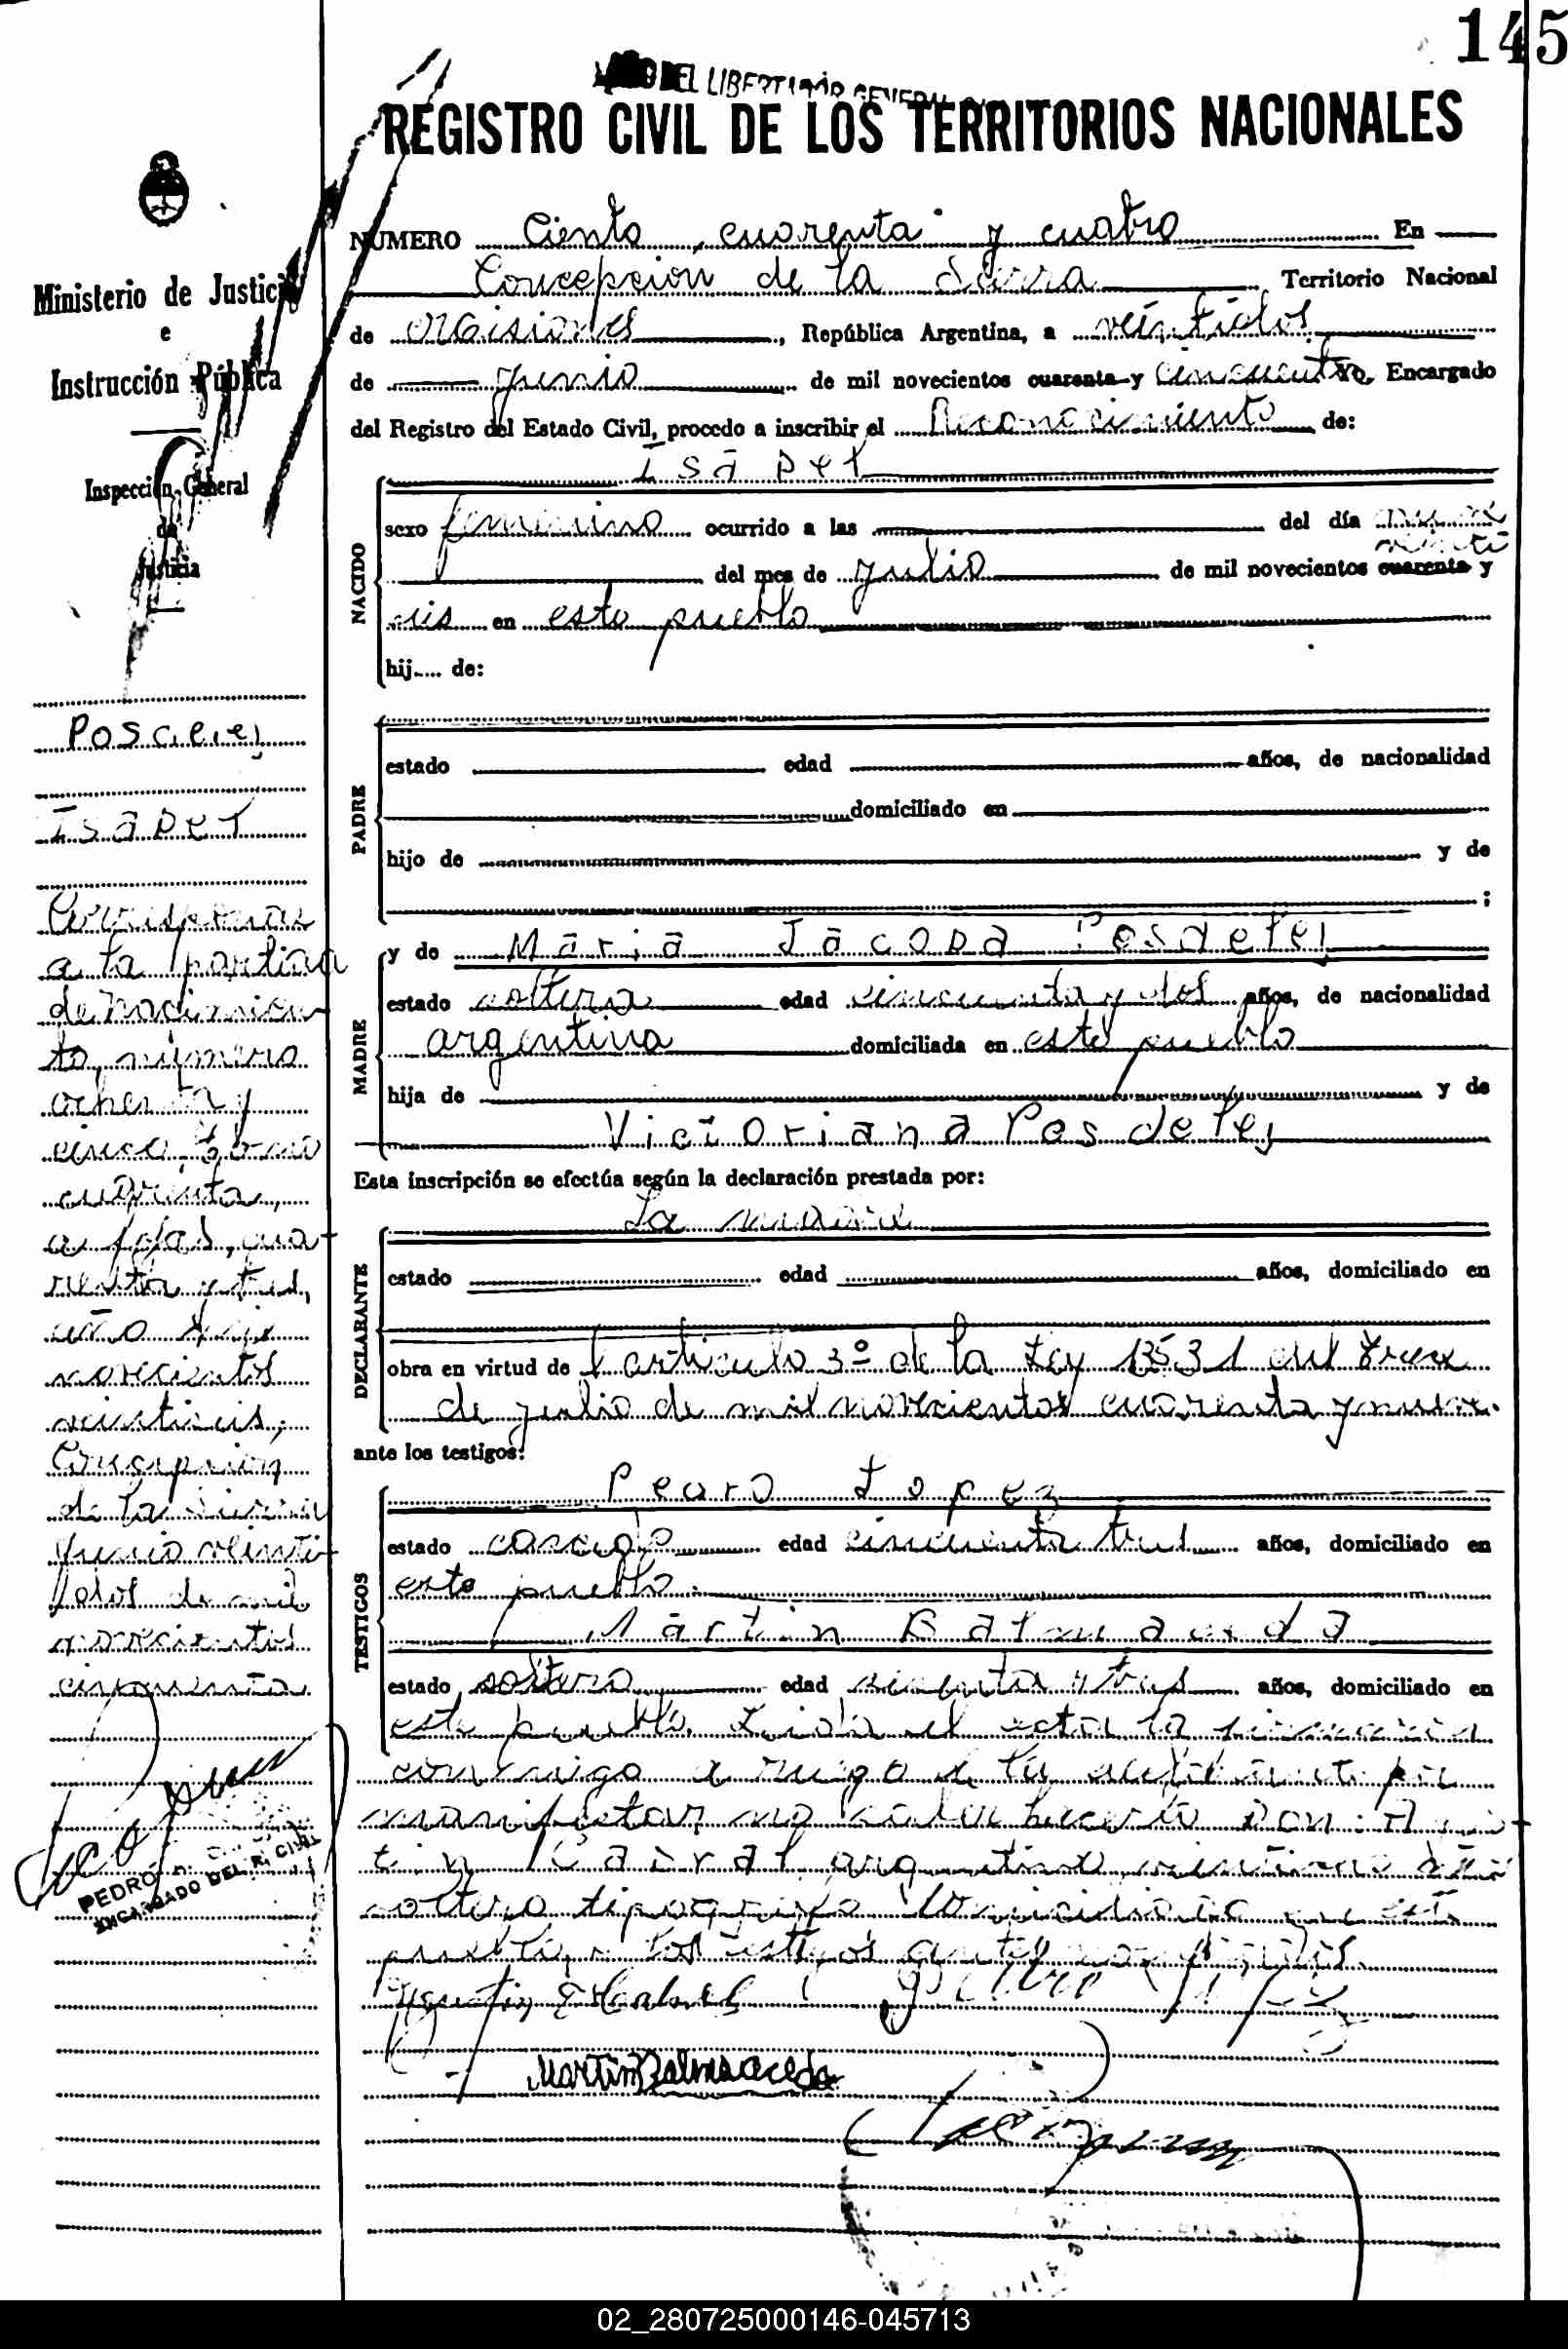 145
DEL LIBERTADOR GENERAL
REGISTRO CIVIL DE LOS TERRITORIOS NACIONALES
NUMERO Ciento cuarenta y cuatro En
Concepción de la Sierra Territorio Nacional
de Misiones, República Argentina, a veintidos
de junio de mil novecientos cuarenta y cincuenta Yo, Encargado
del Registro del Estado Civil, procedo a inscribir el Reconocimiento de:
Isabel
NACIDO
sexo femenino ocurrido a las del día nueve
veinti
del mes de julio de mil novecientos cuarenta y
seis en este pueblo
hij.... de:
PADRE
estado edad años, de nacionalidad
domiciliado en
hijo de y de
;
MADRE
y de María Jacoba Posdeley
estado soltera edad cincuenta y dos años, de nacionalidad
argentina domiciliada en este pueblo
hija de y de
Victoriana Posdeley
Esta inscripción se efectúa según la declaración prestada por:
La madre
DECLARANTE
estado edad años, domiciliado en
obra en virtud de articulo 3º de la Ley 13531 del trece
de julio de mil novecientos cuarenta y nueve.
ante los testigos:
Pedro Lopez
TESTIGOS
estado casado edad cincuenta tres años, domiciliado en
este pueblo
Martin Balmaceda
estado soltero edad y tres años, domiciliado en
este pueblo. Leida el acta la
conmigo a ruego de la por
manifestar no saber hacerlo Don
Cabral argentino años
soltero domiciliado en este
pueblo, y los testigos
Martin Balmaceda
Ministerio de Justicia
e
Instrucción Pública
Inspección General
de
Justicia
Posdeley
Isabel
Corresponde
a la partida
de nacimien-
to, número
ochenta y
cinco, tomo
cuarenta,
a fojas, cua-
renta y tres,
año mil
novecientos
veintiseis;
Concepción
de la Sierra
junio veinti-
dos de mil
novecientos
cincuenta.
PEDRO
ENCARGADO DEL R. CIVIL
02_280725000146-045713